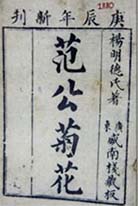 1880
庚辰年新刊
楊明德氏著
范公菊花
廣東
盛南棧藏板